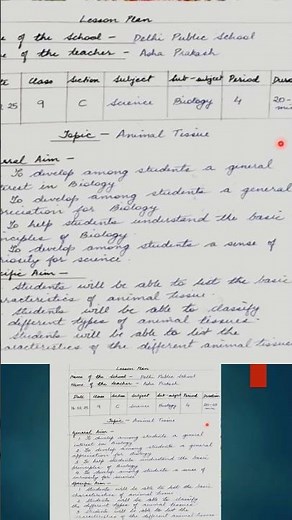 Lesson Plan
e of the School - Delhi Public School
e of the teacher - Asha Prakash
te Class Section Subject Sub-subject Period Dura
.25 9 C Science Biology 4 20-
min
Topic - Animal Tissue
eral Aim -
To develop among students a general
erest in Biology
To develop among students a general
preciation for Biology
To help students understand the basic
nciples of Biology.
To develop among students a sense of
riosity for science.
cific Aim -
Students will be able to list the basic
aracteristics of animal tissue.
Students will be able to classify
different types of animal tissues.
Students will be able to list the
aracteristics of the different animal tissue
Lesson Plan
Name of the School - Delhi Public School
Name of the teacher - Asha Prakash
Date Class Section Subject Sub-subject Period Duration
9 C Science Biology 4 min
Topic - Animal Tissue
General Aim -
1. To develop among students a general
interest in Biology
2. To develop among students a general
appreciation for Biology
3. To help students understand the basic
principles of Biology.
4. To develop among students a sense of
curiosity for science.
Specific Aim -
1. Students will be able to list the basic
characteristics of animal tissue.
2. Students will be able to classify
different types of animal tissues.
3. Students will be able to list the
characteristics of the different animal tissue